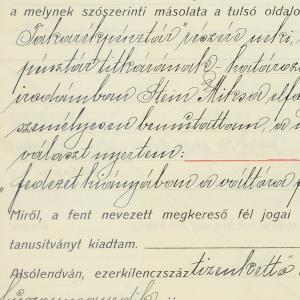 a melynek szószerinti másolata a tulsó oldalo
Takarékpénztár" részére neki,
pénztár titkárának - határoz
irodámban Stein Miksa elfo
személyesen bemutattam, a
választ nyertem:
„fedezet hiányában a váltóra f
Miről, a fent nevezett megkereső fél jogai
tanusitványt kiadtam.
Alsólendván, ezerkilencszáz tizenkettő